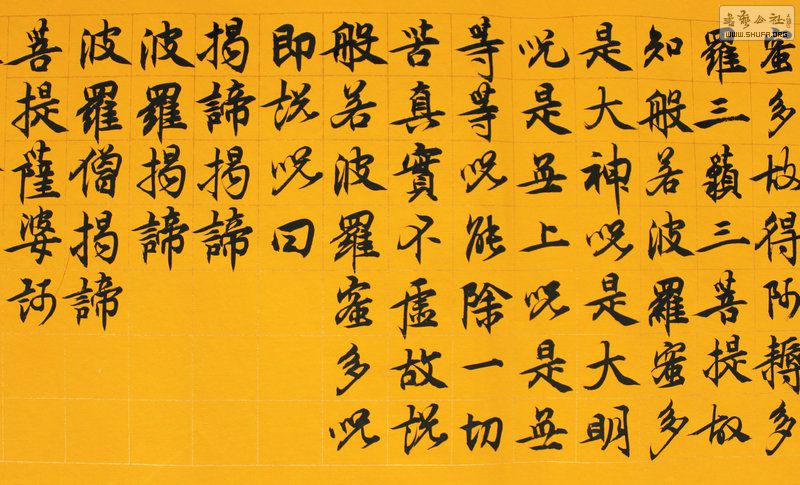 蜜多故得阿耨多
羅三藐三菩提故
知般若波羅蜜多
是大神咒是大明
咒是無上咒是無
等等咒能除一切
苦真實不虛故說
般若波羅蜜多咒
即說咒曰
揭諦揭諦
波羅揭諦
波羅僧揭諦
菩提薩婆訶
WWW.SHUFA.ORG